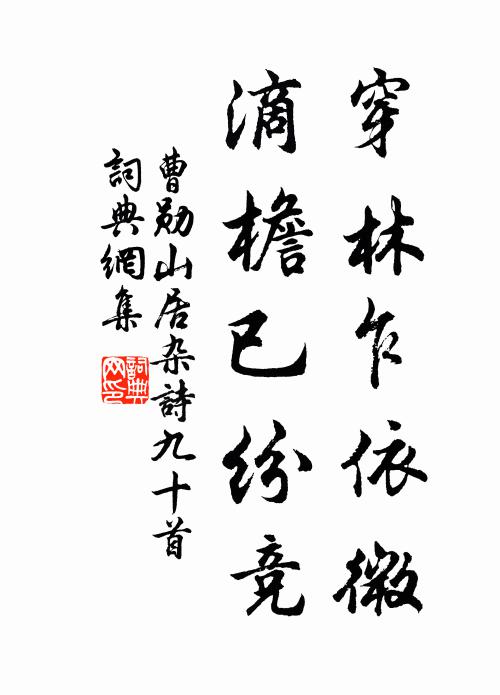 穿林乍依微
滴檐已纷竞
曹勋山居杂詩九十首
詞典網集
詞典网印